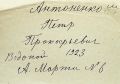 Антоненко
Петр
Прокорьевич
Водопой 1923
А. Марти № 6